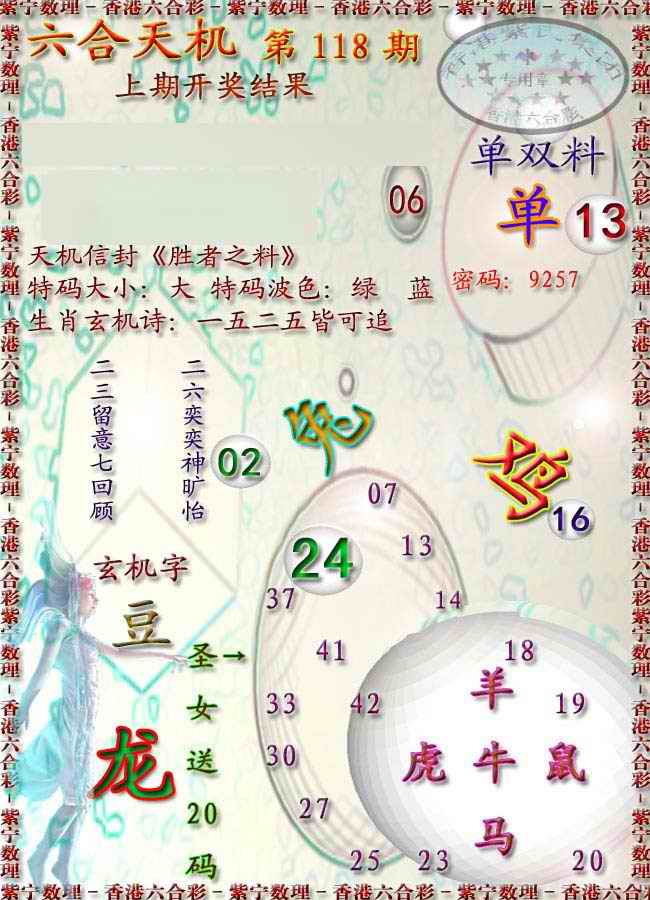 紫宁数理-香港六合彩-紫宁数理-香港六合彩-紫宁数理-香港六合彩-紫宁数理
六合天机 第 118 期
上期开奖结果
专用章
香港六合彩
单双料
06
单 13
天机信封《胜者之料》
特码大小：大 特码波色：绿 蓝
密码：9257
生肖玄机诗：一五二五皆可追
二三留意七回顾
二六奕奕神旷怡
02
兔
鸡
16
07
24
13
37
14
玄机字
豆
圣女送20码
→
41
18
羊
33
42
19
龙
虎 牛 鼠
30
27
马
25
23
20
紫宁数理-香港六合彩-紫宁数理-香港六合彩-紫宁数理-香港六合彩-紫宁数理